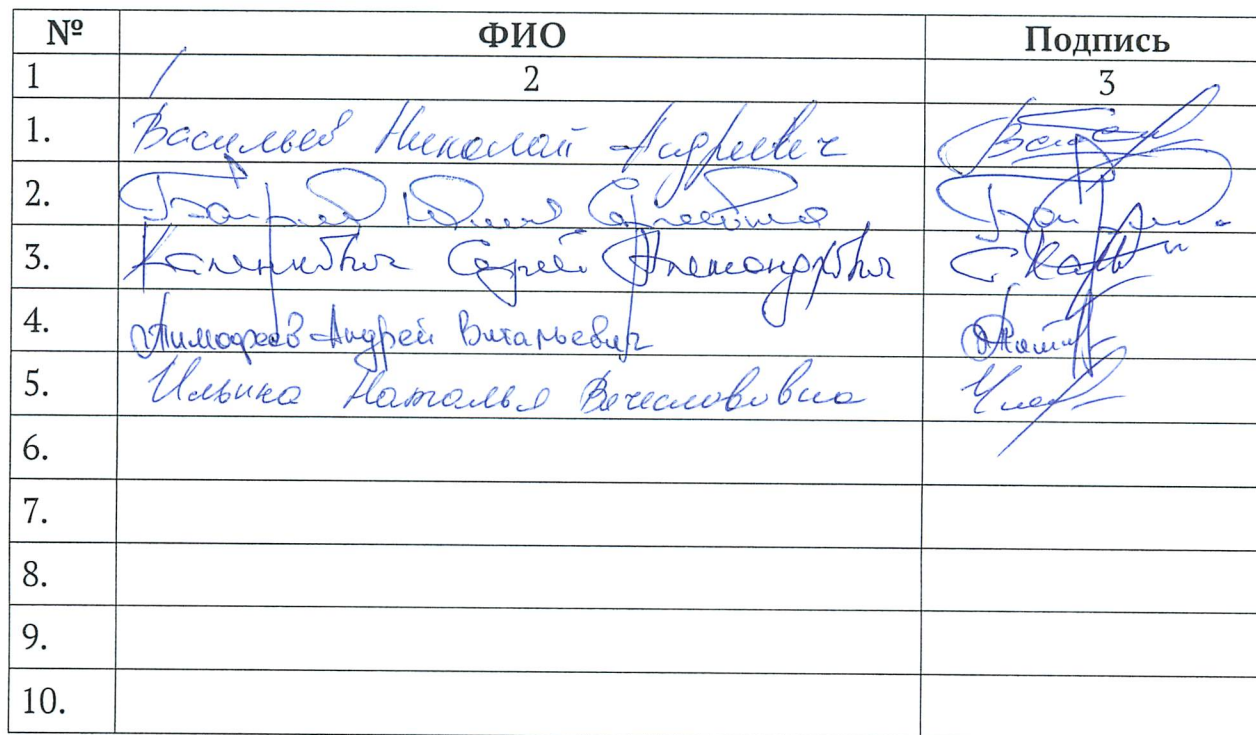 № ФИО Подпись
1 2 3
1. Васильев Николай Андреевич
2. Юлия Сергеевна
3. Каленкович Сергей Александрович
4. Тимофеев Андрей Витальевич
5. Ильина Наталья Вечеславовна
6.
7.
8.
9.
10.